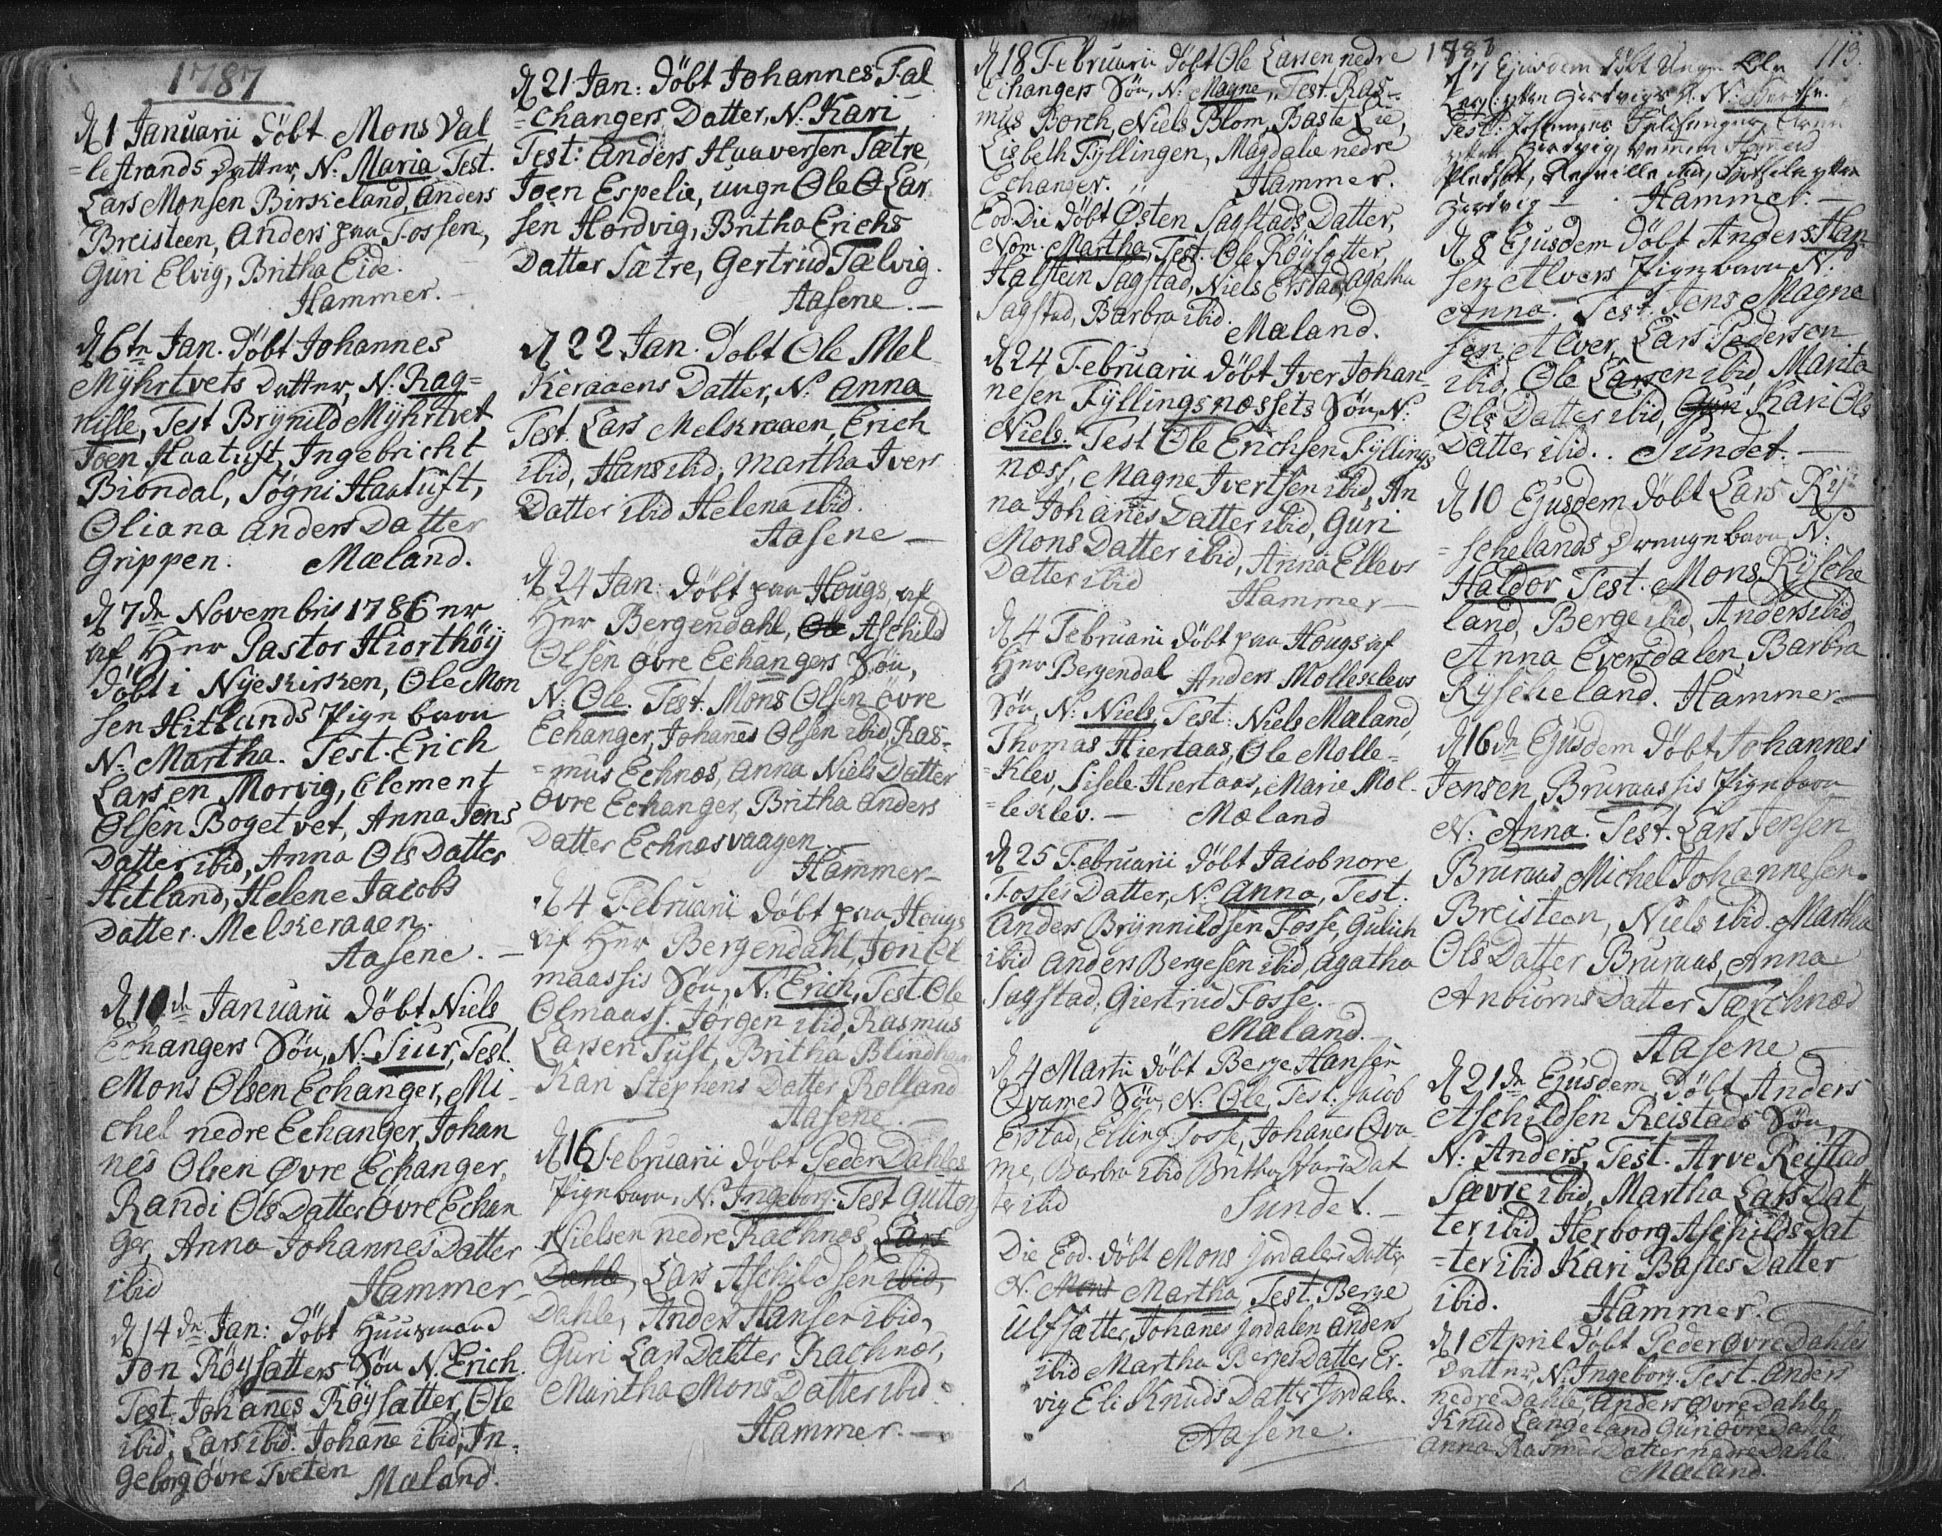 1787
d 1 Januarii døbt Mons Val
=lestrands Datter, N: Maria Test.
Lars Monsen Birkeland, Anders
Breisteen, Anders paa Fossen,
Guri Elvig, Britha Eide.
Hammer.
d 6te Jan. døbt Johannes
Myhrtvets Datter, N. Rag=
nille, Test Brynild Myhrtvet
Joen Haatuft, Ingebricht
Biondal, Søgni Haatuft,
Oliana Anders Datter
Grippen. Mæland.
d 7de Novembris 1786 er
af Her Pastor Hiorthøy
døbt i Nyekirken, Ole Mon
sen Hitlands Pigebarn
N: Martha. Test. Erich
Larsen Morvig, Clement
Olsen Bogetvet, Anna Jens
Datter ibid, Anna Ols Datter
Hitland, Helene Jacobs
Datter Melkeraaen.
Aasene.
d 10de Januarii døbt Niels
Echangers Søn, N. Siur, Test.
Mons Olsen Echanger, Mi
chel nedre Echanger, Johan
nes Olsen Øvre Echanger,
Randi Ols Datter Øvre Echan
ger, Anna Johannes Datter
ibid Hammer
d 14de Jan: døbt Huusmand
Jon Røysatters Søn N. Erich.
Test: Johanes Røysatter, Ole
ibid, Lars ibid. Johane ibid, In-
geborg Øvre Tveten Mæland.
d 21 Jan: døbt Johannes Fal
=changers Datter, N. Kari
Test: Anders Haaversen Sætre,
Joen Espelie, unge Ole O Lar
sen Hordvig, Britha Erichs
Datter Sætre, Gertrud Tælvig.
Aasene.
d 22 Jan. døbt Ole Mel
Keraaens Datter, N. Anna
Test. Lars Melkraaen, Erich
ibid, Hans ibid, Martha Ivers
Datter ibid Helena ibid.
Aasene
d 24 Jan: døbt paa Hougs af
Her Bergendahl, Ole Aschild
Olsen øvre Echangers Søn,
N: Ole. Test: Mons Olsen øvre
Echanger, Johanes Olsen ibid, Ras-
=mus Echnæs, Anna Niels Datter
Øvre Echanger, Britha Anders
Datter Echnæsvaagen.
Hammer
d 4 Februarii døbt paa Hougs
af Her Bergendahl, Jon Ol
maassis Søn, N. Erich, Test Ole
Olmaass. Jørgen ibid, Rasmus
Larsen Tuft, Britha Blindheim
Kari Stephens Datter Rolland
Aasene.
d 16 Februarii døbt Peder Dahles
Pigebarn, N. Ingeborg. Test Guttorm
Nielsen nedre Rachnæs, Lars
Dahle, Lars Aschildsen ibid,
Dahle, Anders Hansen ibid,
Guri Lars Datter Rachnæs,
Maritha Mons Datter ibid.
Hammer.
d 18 Februarii døbt Ole Larsen nedre
Echangers Søn, N: Magne, Test: Ras-
mus Borch, Niels Blom, Baste Lie,
Lisbeth Fyllingen, Magdale nedre
Echanger. Hammer.
Eod: Die døbt Østen Sagstads Datter,
Nom. Martha, Test. Ole Røysatter,
Halstein Sagstad, Niels Erstad, Agatha
Sagstad, Barbra ibid.
Mæland.
d 24 Februarii døbt Iver Johan-
nesen Fyllingsnæssets Søn, N:
Niels. Test Ole Erichsen Fyllings
næss, Magne Ivertsen ibid, An
na Johanes Datter ibid, Guri
Mons Datter ibid, Anna Ellevs
Datter ibid Hammer
d 4 Februarii døbt paa Hougs af
Her Bergendal Anders Molleklevs
Søn, N: Niels, Test: Niels Mæland,
Thomas Hiertaas, Ole Molle-
=Klev, Sisele Hiertaas, Marie Mol-
=leklev. Mæland
d 25 Februarii døbt Jacob nore
Fosses Datter, N. Anna, Test:
Anders Brynnildsen Fosse, Gulich
ibid Anders Bergesen ibid, Agatha
Sagstad, Giertrud Fosse.
Mæland.
d 4 Martii døbt Berge Hansen
Qvames Søn, N. Ole, Test. Jacob
Erstad, Elling Fosse, Johanes Qva-
me, Barbra ibid Britha Hans Dat
ter ibid Sundet.
Die Eod. døbt Mons Jordalens Datter
N. Mons Martha, Test. Berge
Ulfsatter, Johanes Jordalen Anders
ibid Martha Berges Datter Er-
vig Eli Knuds Datter Jordalen.
Aasene.
1787 113.
d 7 Ejusdem døbt Unge Ole
Hammer.
d 8 Ejusdem døbt Anders Han
sen Alvers Pigebarn N.
Anna. Test. Jens Magne
sen Alver, Lars Pedersen
ibid, Ole Larsen ibid, Marita
Ols Datter ibid, Guri Kari Ols
Datter ibid. Sundet.
d 10 Ejusdem døbt Lars Ry-
=schelands Drengebarn N:
Haldor Test. Mons Rysche
land, Berge ibid, Anders ibid
Anna Eversdalen, Barbra
Ryscheland. Hammer
d 16de Ejusdem døbt Johannes
Jensen Bruraassis Pigebarn
N: Anna. Test. Lars Jensen
Bruraas, Michel Johannesen
Breisteen, Niels ibid. Martha
Ols Datter Bruraas, Anna
Anbiorns Datter Tærchnæs
Aasene
d 21de Ejusdem, døbt Anders
Aschildsen Reistads Søn,
N: Anders, Test. Arve Reistad
Sævre ibid, Martha Lars Dat
ter ibid, Herborg Aschilds Dat
=ter ibid Kari Bastes Datter
ibid. Hammer.
d 1 April døbt Peder Øvre Dahles
Datter, N. Ingeborg. Test. Anders
nedre Dahle, Anders Øvre Dahle,
Knud Langeland Guri Øvre Dahle,
Anna Rasmus Datter nedre Dahle.
Mæland.